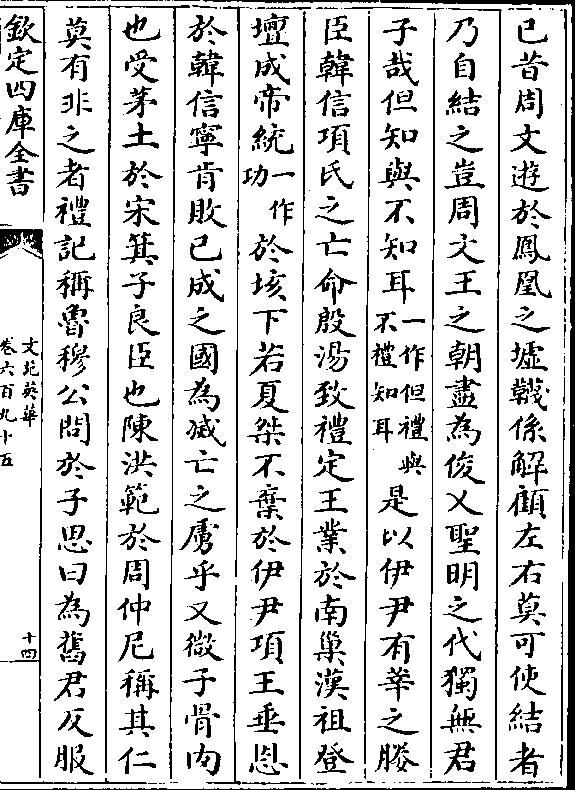 已昔周文遊於鳳凰之墟韈係解顧左右莫可使結者
乃自結之豈周文王之朝盡為俊乂聖明之代獨無君
子哉但知與不知耳一作但禮與不禮知耳是以伊尹有莘之媵
臣韓信項氏之亡命殷湯致禮定王業於南巢漢祖登
壇成帝統一作功於垓下若夏桀不棄於伊尹項王垂恩
於韓信寧肯敗已成之國為滅亡之虜乎又微子骨肉
也受茅土於宋箕子良臣也陳洪範於周仲尼稱其仁
莫有非之者禮記稱魯穆公問於子思曰為舊君反服
欽定四庫全書
文苑英華
卷六百九十五
十四